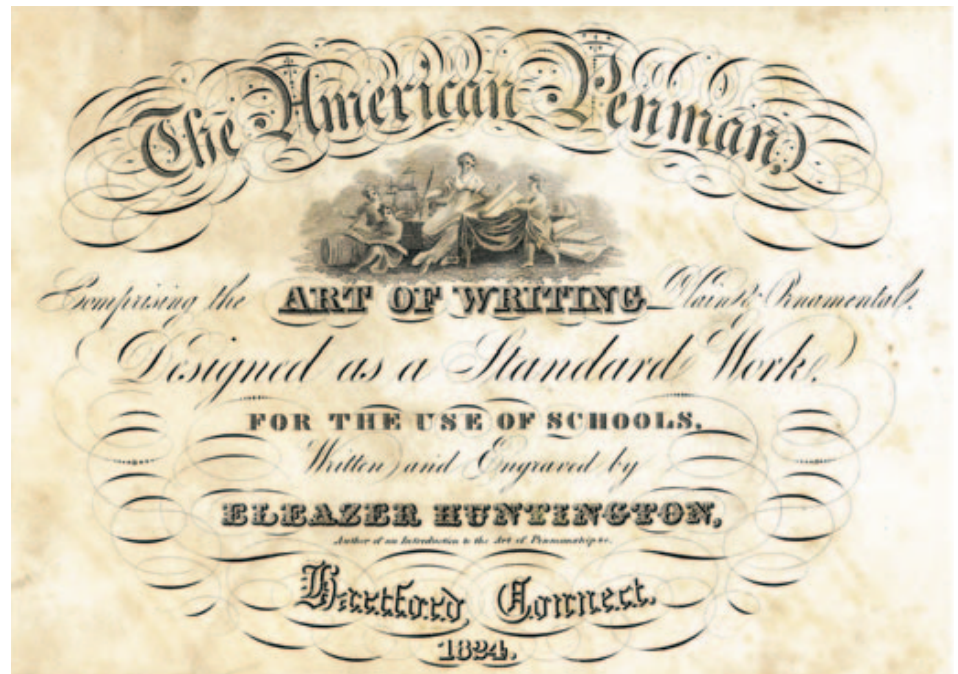 The American Penman,
Comprising the ART OF WRITING Plain & Ornamental.
Designed as a Standard Work,
FOR THE USE OF SCHOOLS.
Written and Engraved by
ELEAZER HUNTINGTON,
Author of an Introduction to the Art of Penmanship &c.
Hartford, Connect.
1824.